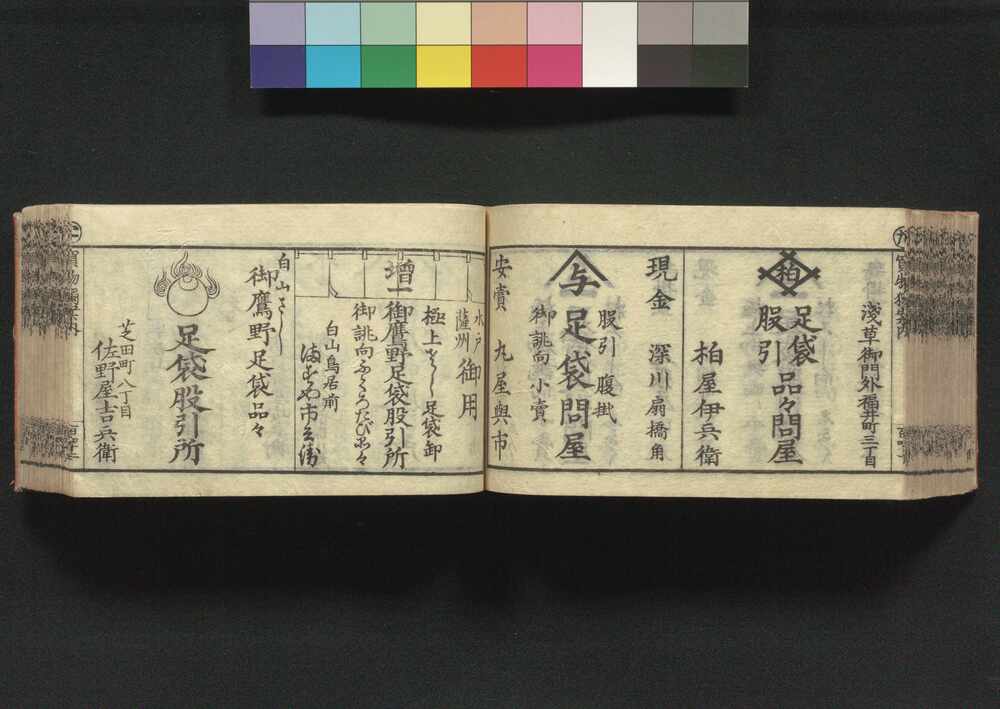 淺草御門外福井町三丁目
柏
足袋
股引
品々問屋
柏屋伊兵衛
現金
深川扇橋角
与
股引
腹掛
足袋問屋
御誂向小賣
安賣
丸屋與市
水戸
薩州
御用
極上さらし足袋卸
増一
御鷹野足袋股引所
白山鳥居前
白山さらし
御鷹野足袋品々
足袋股引所
芝田町八丁目
佐野屋吉兵衛